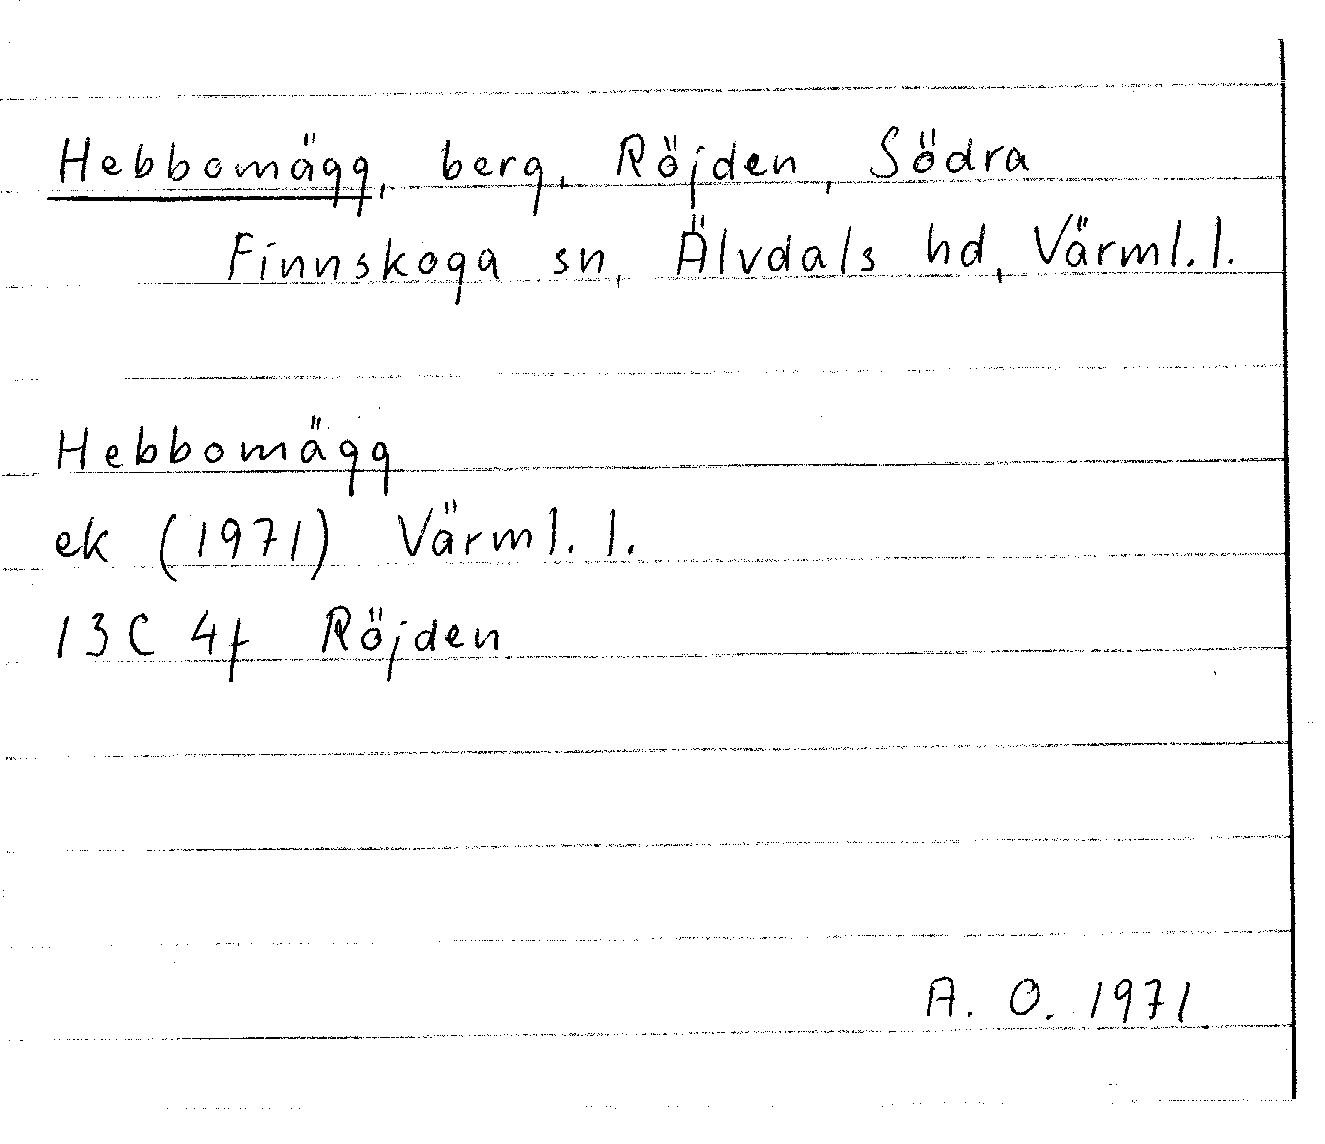 Hebbomägg, berg, Röjden, Södra
Finnskoga sn, Älvdals hd, Värml. l.
Hebbomägg
ek (1971) Värml. l.
13C 4f Röjden
A. O. 1971